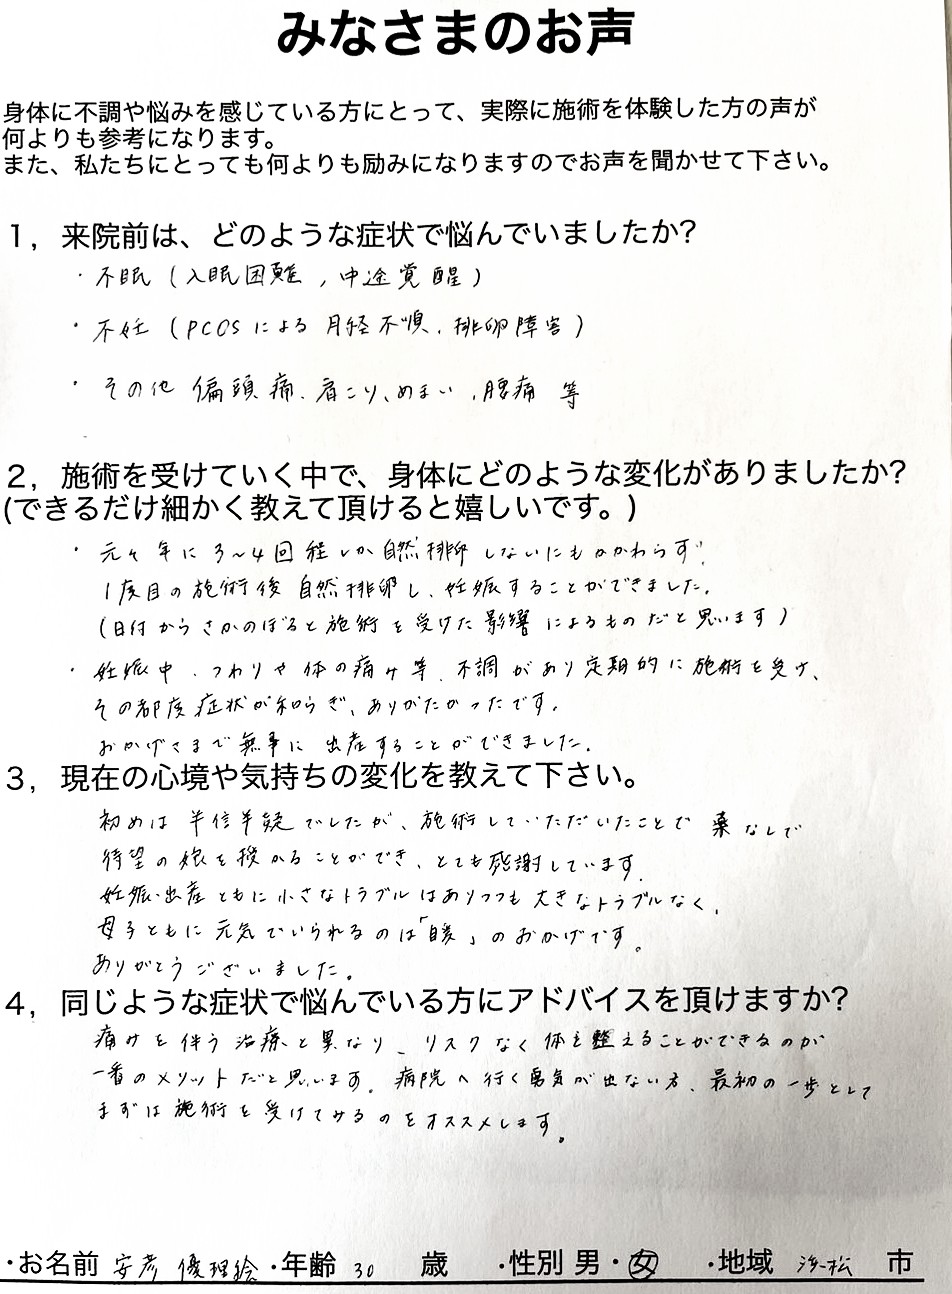 みなさまのお声
身体に不調や悩みを感じている方にとって、実際に施術を体験した方の声が
何よりも参考になります。
また、私たちにとっても何よりも励みになりますのでお声を聞かせて下さい。
1，来院前は、どのような症状で悩んでいましたか?
・不眠(入眠困難,中途覚醒)
・不妊(PCOSによる月経不順、排卵障害)
・その他 偏頭痛、肩こり、めまい、腰痛 等
2，施術を受けていく中で、身体にどのような変化がありましたか?
(できるだけ細かく教えて頂けると嬉しいです。)
・元々年に3〜4回程しか自然排卵しないにもかかわらず、
1度目の施術後自然排卵し、妊娠することができました。
(日付からさかのぼると施術を受けた影響によるものだと思います)
・妊娠中、つわりや体の痛み等、不調があり定期的に施術を受け、
その都度症状が和らぎ、ありがたかったです。
おかげさまで無事に出産することができました。
3，現在の心境や気持ちの変化を教えて下さい。
初めは半信半疑でしたが、施術していただいたことで薬なしで
待望の娘を授かることができ、とても感謝しています。
妊娠・出産ともに小さなトラブルはありつつも大きなトラブルなく、
母子ともに元気でいられるのは「自暖」のおかげです。
ありがとうございました。
4，同じような症状で悩んでいる方にアドバイスを頂けますか?
痛みを伴う治療と異なり、リスクなく体を整えることができるのが
一番のメリットだと思います。病院へ行く勇気が出ない方、最初の一歩として
まずは施術を受けてみるのをオススメします。
・お名前 安彦 優理絵 ・年齢 30 歳 ・性別 男・女 ・地域 浜松 市